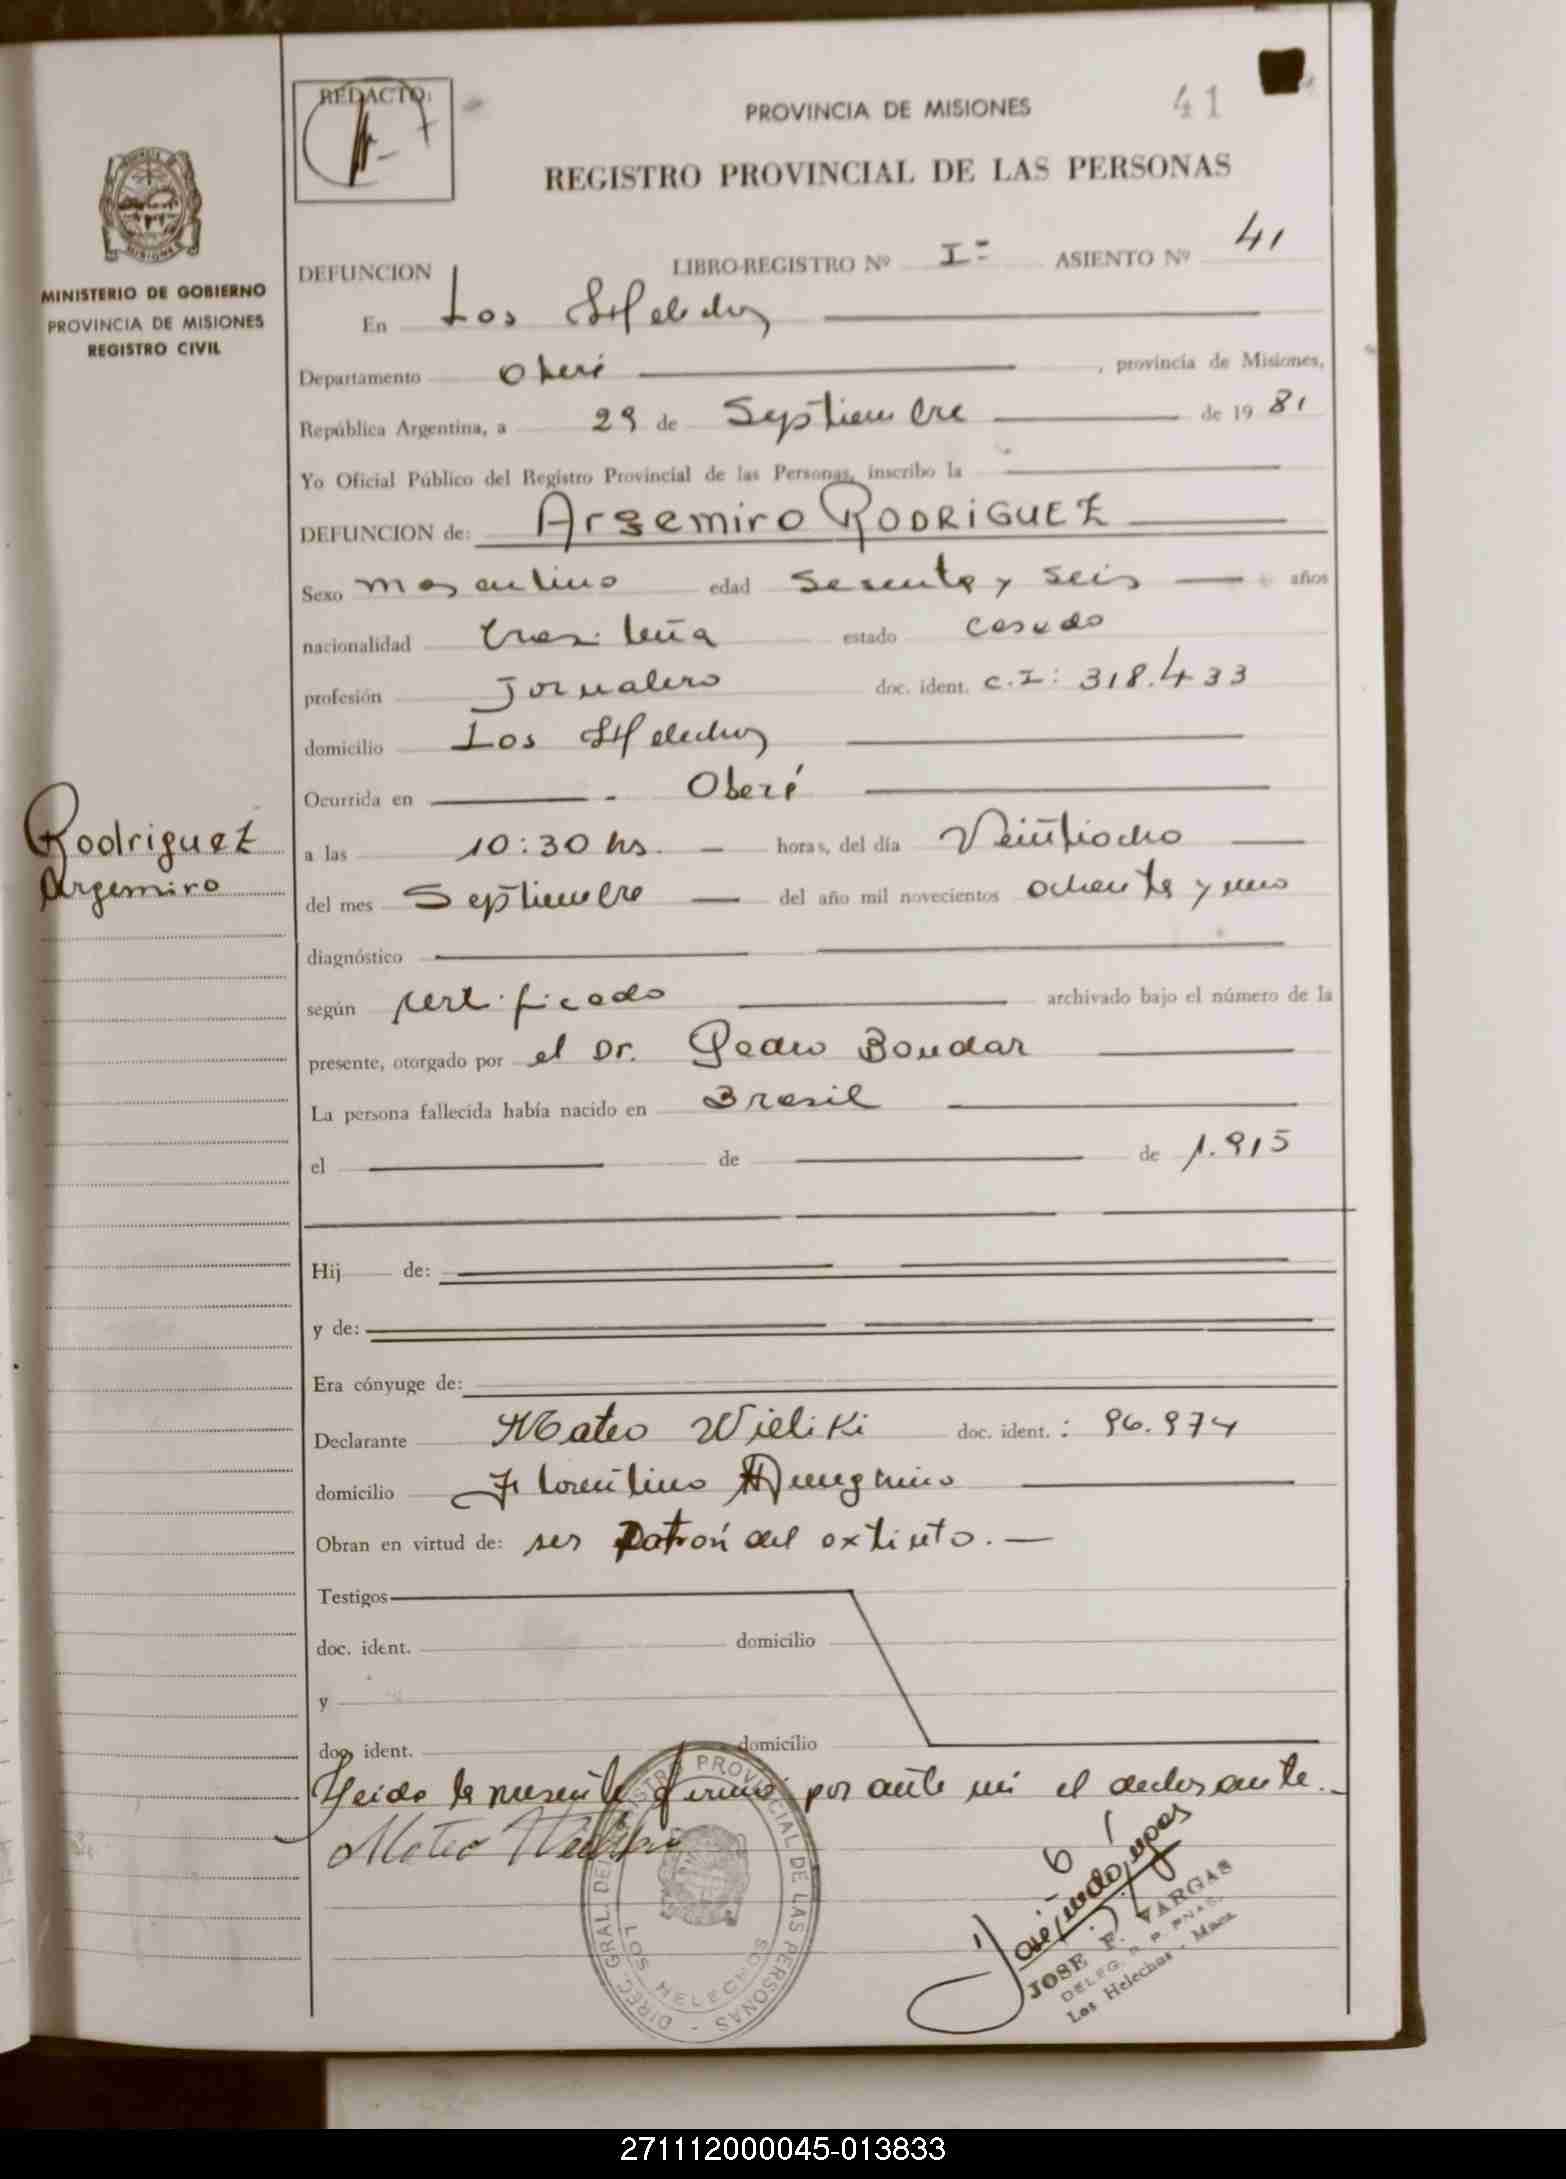 REDACTO:
41
PROVINCIA DE MISIONES
REGISTRO PROVINCIAL DE LAS PERSONAS
MINISTERIO DE GOBIERNO
PROVINCIA DE MISIONES
REGISTRO CIVIL
DEFUNCION LIBRO-REGISTRO Nº I= ASIENTO Nº 41
En Los Helechos
Departamento Oberá , provincia de Misiones,
República Argentina, a 29 de Septiembre de 1981
Yo Oficial Público del Registro Provincial de las Personas, inscribo la
DEFUNCION de: Argemiro RODRIGUEZ
Sexo masculino edad sesenta y seis años
nacionalidad brasileña estado casado
profesión Jornalero doc. ident. C.I: 318.433
domicilio Los Helechos
Ocurrida en Oberá
Rodriguez
Argemiro
a las 10:30 hs. horas, del día Veintiocho
del mes Septiembre del año mil novecientos ochenta y uno
diagnóstico
según certificado archivado bajo el número de la
presente, otorgado por el Dr. Pedro Bondar
La persona fallecida había nacido en Brasil
el de de 1.915
Hij de:
y de:
Era cónyuge de:
Declarante Mateo Wieliki doc. ident.: 96.974
domicilio Florentino Ameghino
Obran en virtud de: ser Patrón del extinto.
Testigos
doc. ident. domicilio
y
doc. ident. domicilio
Leida la presente firma por ante mi el declarante.
Mateo
DIREC. GRAL. DEL REGISTRO PROVINCIAL DE LAS PERSONAS
LOS HELECHOS
JOSE F. VARGAS
DELEG. R. P. PNAS.
Los Helechos - Mnes.
271112000045-013833